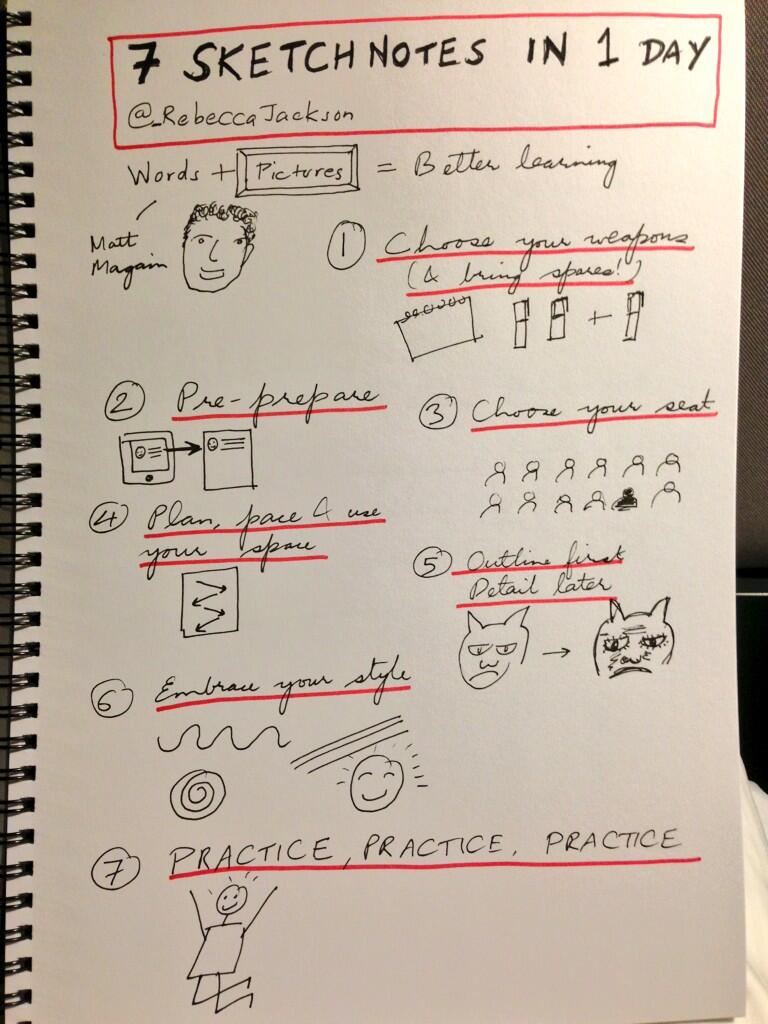 7 SKETCHNOTES IN 1 DAY
@_RebeccaJackson
Words + Pictures = Better learning
Matt
Magain
1 Choose your weapons
(& bring spares!)
2 Pre-prepare
3 Choose your seat
4 Plan, pace & use
your space
5 Outline first
Detail later
6 Embrace your style
7 PRACTICE, PRACTICE, PRACTICE